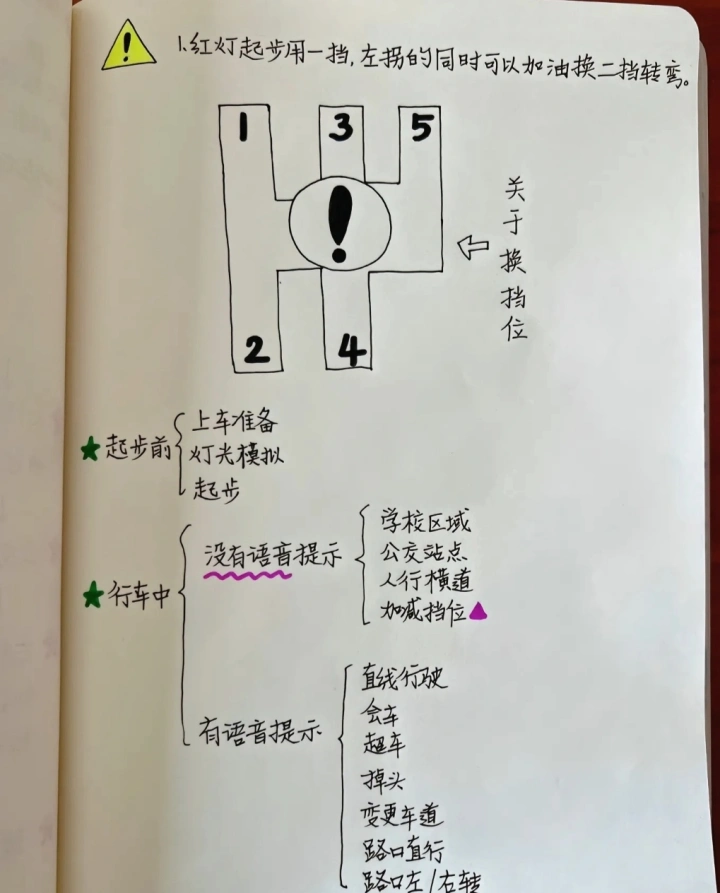 !
1.红灯起步用一挡,左拐的同时可以加油换二挡转弯。
1 3 5
!
2 4
关于换挡位
★起步前
上车准备
灯光模拟
起步
★行车中
没有语音提示
学校区域
公交站点
人行横道
加减挡位▲
有语音提示
直线行驶
会车
超车
掉头
变更车道
路口直行
路口左/右转